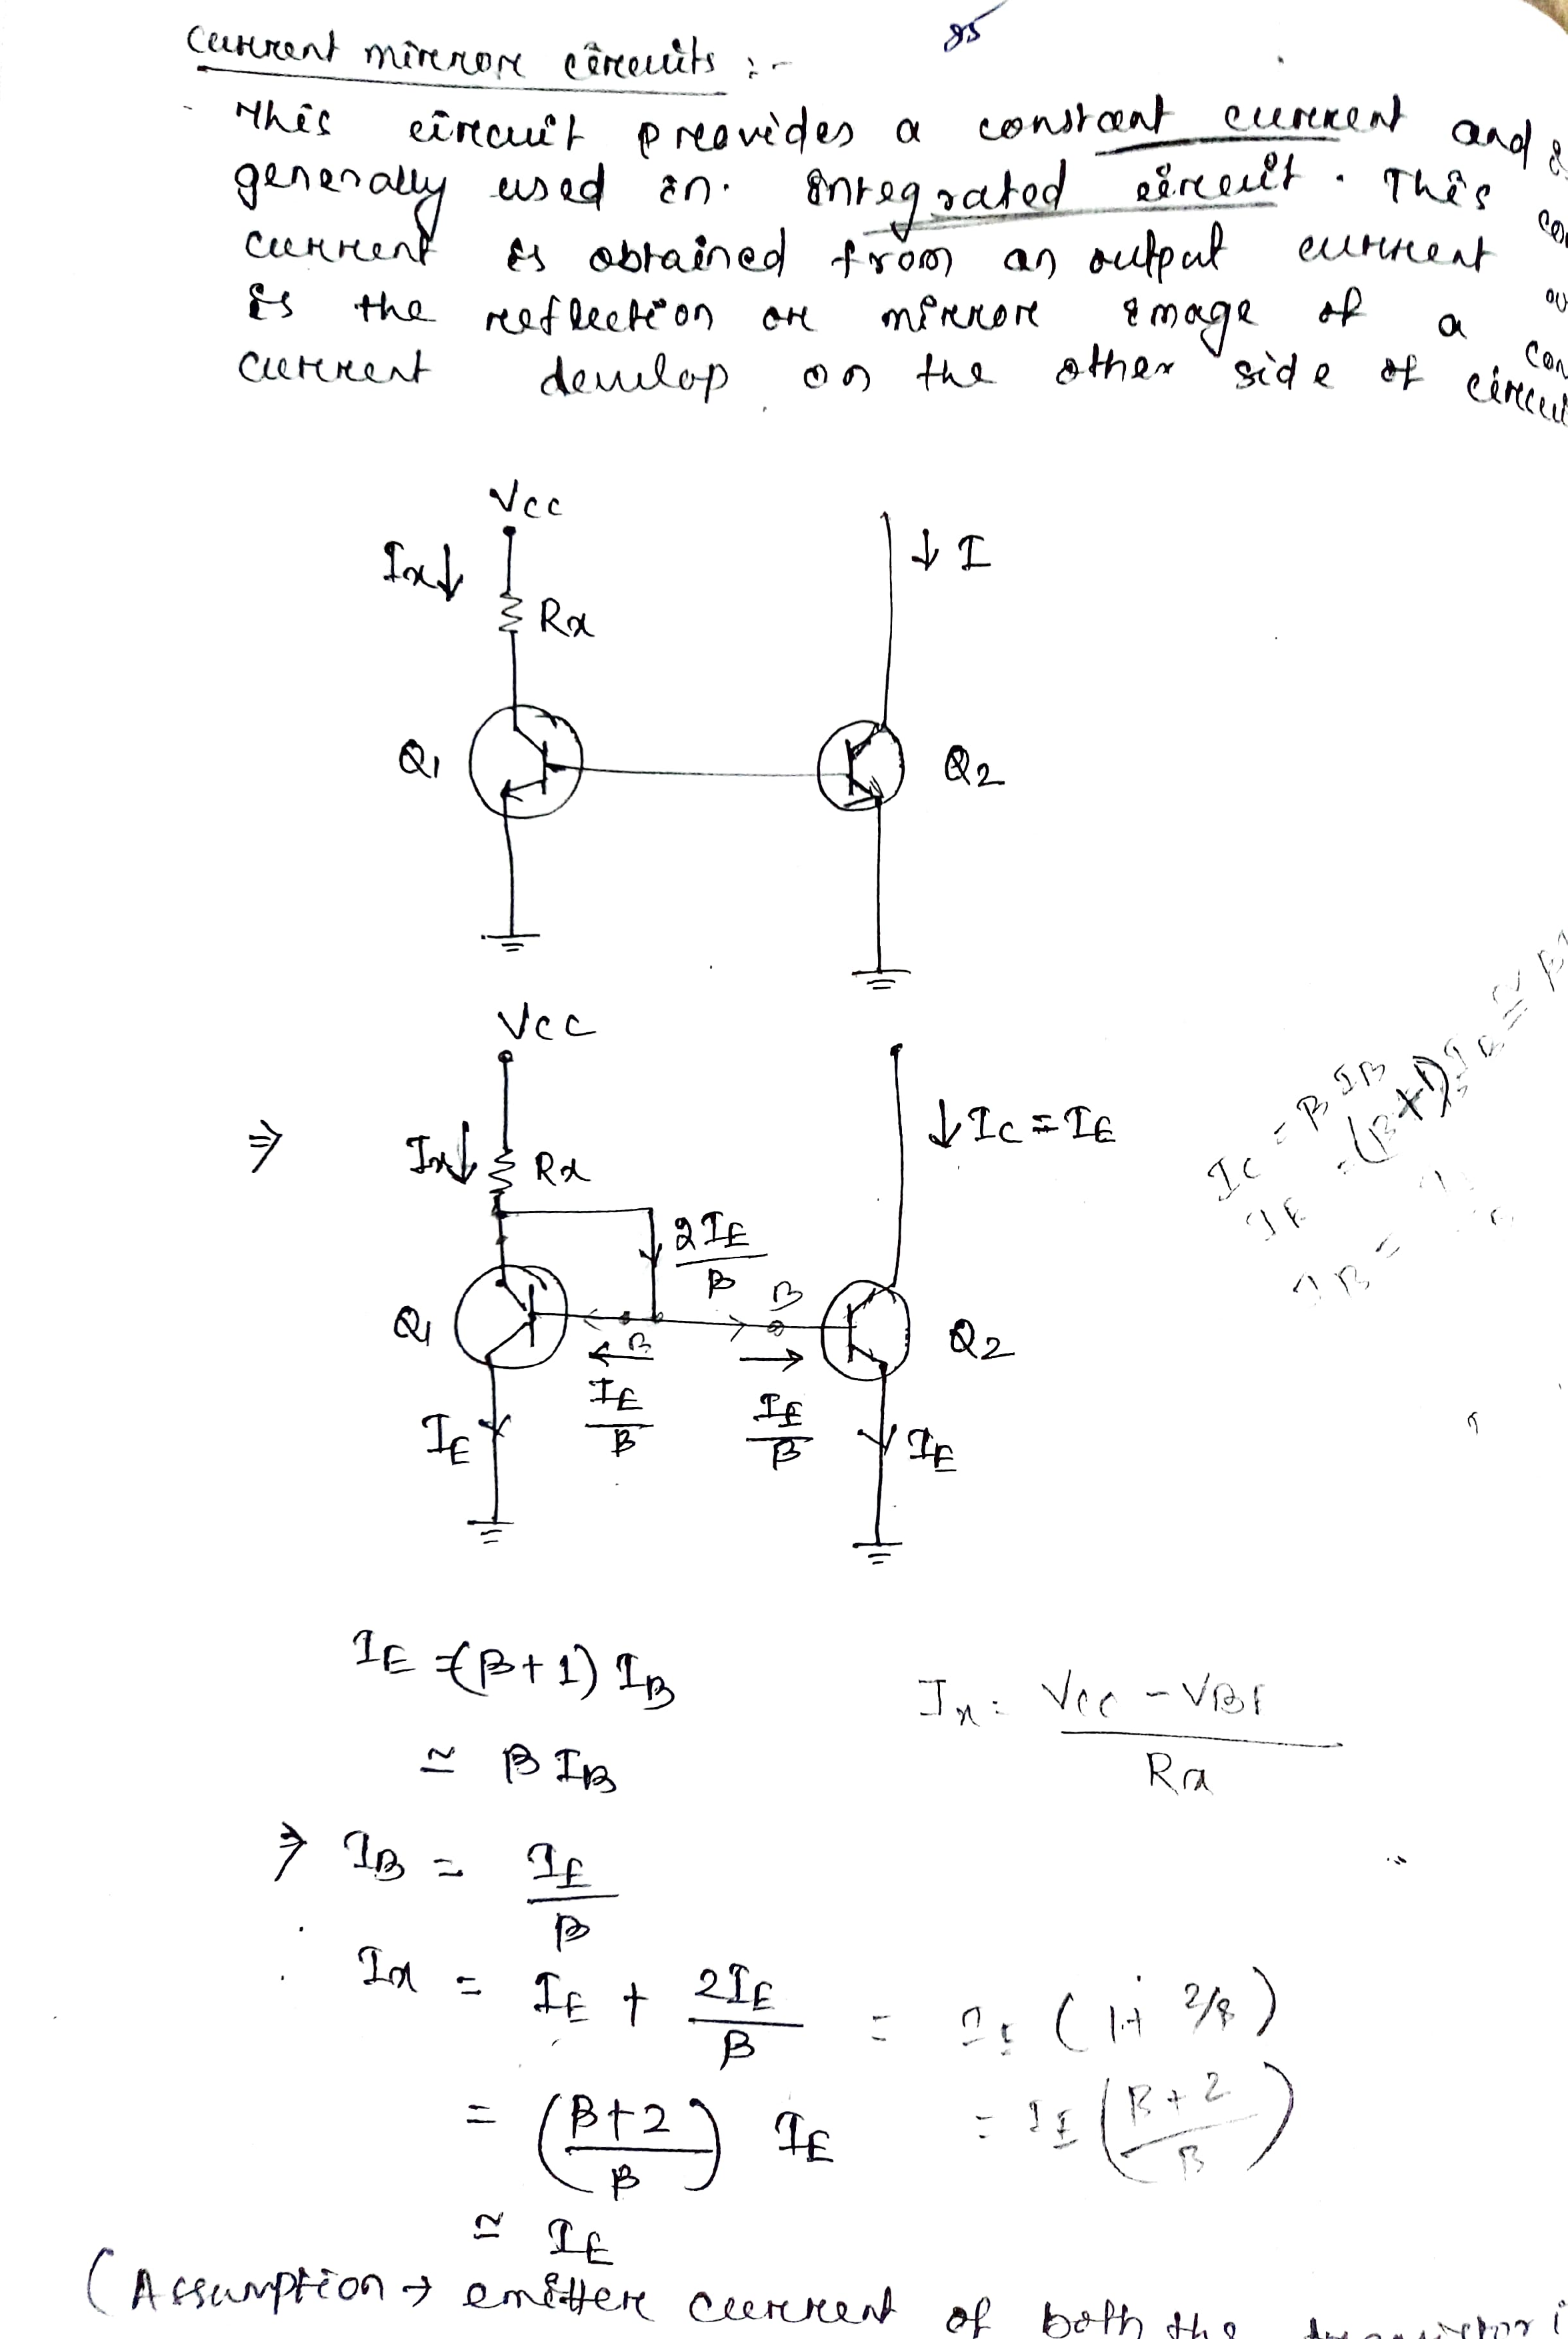 85
Current mirror circuits :-
This circuit provides a constant current and
generally used in. integrated circuit. This
current is obtained from an output current
is the reflection or mirror image of a
current develop on the other side of
Vcc
Ix↓
Rx
↓ I
Q1
Q2
Vcc
⇒
Ix↓
Rx
↓ IC = IE
IC = β IB
IE = (β+1) IB ≅ β
IB =
2IE
β
Q1
B
B
Q2
IE
β
IE
β
IE
IE
IE = (β+1) IB
≅ β IB
Ix = Vcc - VBE
Rx
⇒ IB = IE
β
Ix = IE + 2IE / β = IE (1+ 2/β)
= (β+2 / β) IE = IE (β+2 / β)
≅ IE
(Assumption → emitter current of both the